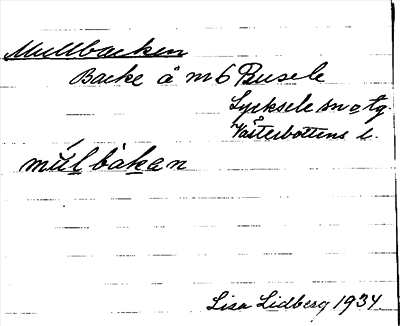 Mullbacken
Backe å m 6 Busele
Lycksele sn o tg.
Västerbottens l.
múlbàkan
Lisa Lidberg 1934